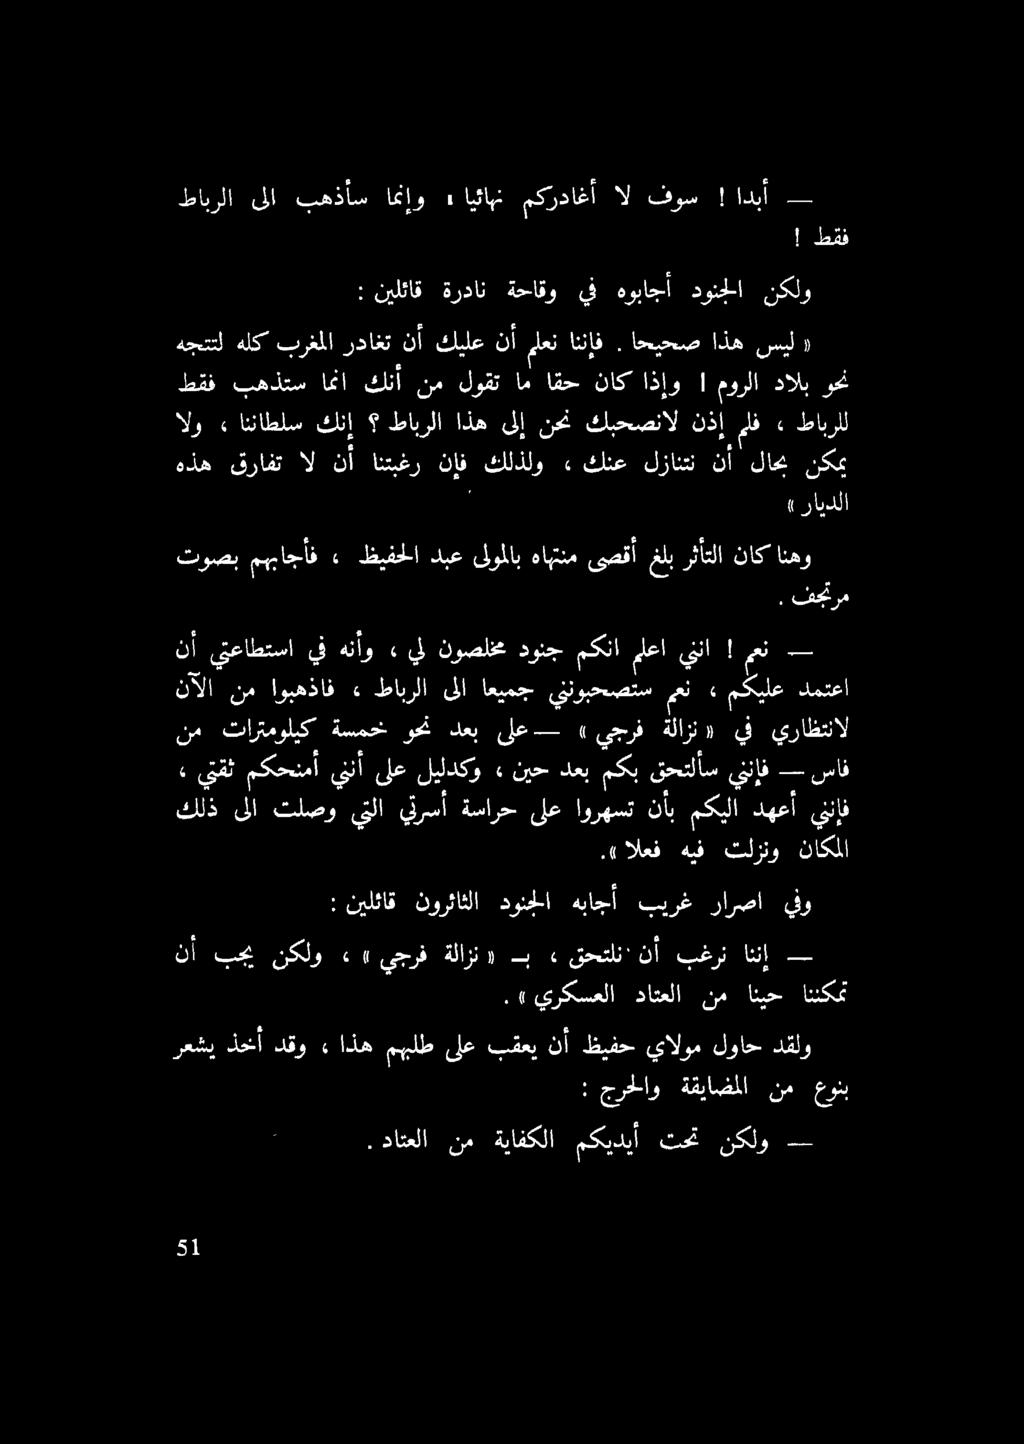 — أبدا ! سوف لا أغادركم نهائيا ؛ وإنما سأذهب الى الرباط
فقط !
ولكن الجنود أجابوه في وقاحة نادرة قائلين :
« ليس هذا صحيحا . فإننا نعلم أن عليك أن تغادر المغرب كله لتتجه
نحو بلاد الروم ! وإذا كان حقا ما تقول من أنك انما ستذهب فقط
للرباط ، فلم إذن لانصحبك نحن إلى هذا الرباط ؟ إنك سلطاننا ، ولا
يمكن بحال أن نتنازل عنك ، ولذلك فإن رغبتنا أن لا تفارق هذه
الديار »
وهنا كان التأثر بلغ أقصى منتهاه بالمولى عبد الحفيظ ، فأجابهم بصوت
مرتجف .
— نعم ! انني اعلم انكم جنود مخلصون لي ، وأنه في استطاعتي أن
اعتمد عليكم ، نعم ستصحبونني جميعا الى الرباط ، فاذهبوا من الآن
لانتظاري في « نزالة فرجي » — على بعد نحو خمسة كيلومترات من
فاس — فإنني سألتحق بكم بعد حين ، وكدليل على أنني أمنحكم ثقتي ،
فإنني أعهد اليكم بأن تسهروا على حراسة أسرتي التي وصلت الى ذلك
المكان ونزلت فيه فعلا ».
وفي اصرار غريب أجابه الجنود الثائرون قائلين :
— إننا نرغب أن نلتحق ، بـ « نزالة فرجي » ، ولكن يجب أن
تمكننا حينا من العتاد العسكري » .
ولقد حاول مولاي حفيظ أن يعقب على طلبهم هذا ، وقد أخذ يشعر
بنوع من المضايقة والحرج :
— ولكن تحت أيديكم الكفاية من العتاد .
51